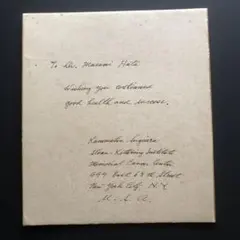 To Dr. Masami Hata
Wishing you continued
good health and success.
Kanematsu Sugiura
Sloan-Kettering Institute
Memorial Cancer Center
444 East 68th Street
New York City, N.Y.
U. S. A.